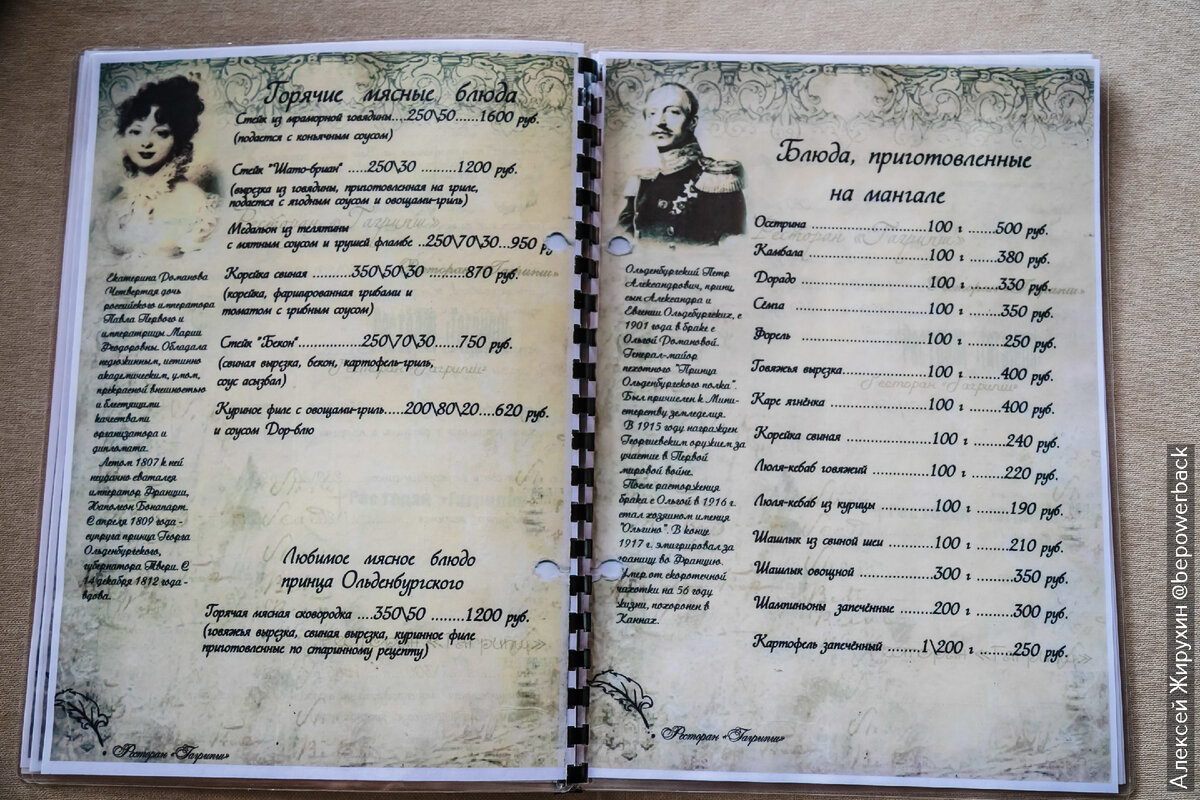 Горячие мясные блюда
Стейк из мраморной говядины....250\50......1600 руб.
(подается с коньячным соусом)
Стейк "Шато-бриан" .....250\30 .........1200 руб.
(вырезка из говядины, приготовленная на гриле,
подается с ягодным соусом и овощами-гриль)
Медальон из телятины
с мятным соусом и грушей фламбе ..250\70\30...950
Корейка свиная .........350\50\30 .........870 руб.
(корейка, фаршированная грибами и
томатом с грибным соусом)
Стейк "Бекон"...............250\70\30 ......750 руб.
(свиная вырезка, бекон, картофель-гриль,
соус асызбал)
Куриное филе с овощами-гриль.....200\80\20....620 руб.
и соусом Дор-блю
Любимое мясное блюдо
принца Ольденбургского
Горячая мясная сковородка ....350\50 .........1200 руб.
(говяжья вырезка, свиная вырезка, куринное филе
приготовленные по старинному рецепту)
Екатерина Романова
Четвертая дочь
российского императора
Павла Первого и
императрицы Марии
Феодоровны. Обладала
недюжинным, истинно
академическим, умом,
прекрасной внешностью
и блестящими
качествами
организатора и
дипломата.
Летом 1807 к ней
неудачно сватался
император Франции,
Наполеон Бонапарт.
С апреля 1809 года -
супруга принца Георга
Ольденбургского,
губернатора Твери. С
14 декабря 1812 года -
вдова.
Ресторан «Гагрипш»
Блюда, приготовленные
на мангале
Осетрина ....................100 г ......500 руб.
Камбала ......................100 г ......380 руб.
Дорадо .......................100 г .......330 руб.
Семга ........................100 г .......350 руб.
Форель .......................100 г .......250 руб.
Говяжья вырезка...............100 г .......400 руб.
Каре ягнёнка .................100 г .......400 руб.
Корейка свиная ...............100 г .......240 руб.
Люля-кебаб говяжий ...........100 г .......220 руб.
Люля-кебаб из курицы .........100 г .......190 руб.
Шашлык из свиной шеи .........100 г .......210 руб.
Шашлык овощной ...............300 г .......350 руб.
Шампиньоны запечённые ......200 г .......300 руб.
Картофель запечённый .......1\200 г .......250 руб.
Ольденбургский Петр
Александрович, принц,
сын Александра и
Евгении Ольдебургских, с
1901 года в браке с
Ольгой Романовой.
Генерал-майор
пехотного "Принца
Ольденбургского полка".
Был причислен к Мини-
стерству земледелия.
В 1915 году награжден
Георгиевским оружием за
участие в Первой
мировой войне.
После расторжения
брака с Ольгой в 1916 г.
стал хозяином имения
"Ольгино". В конце
1917 г. эмигрировал за
границу во Францию.
Умер от скоротечной
чахотки на 56 году
жизни, похоронен в
Каннах.
Ресторан «Гагрипш»
Алексей Жирухин @bepowerback